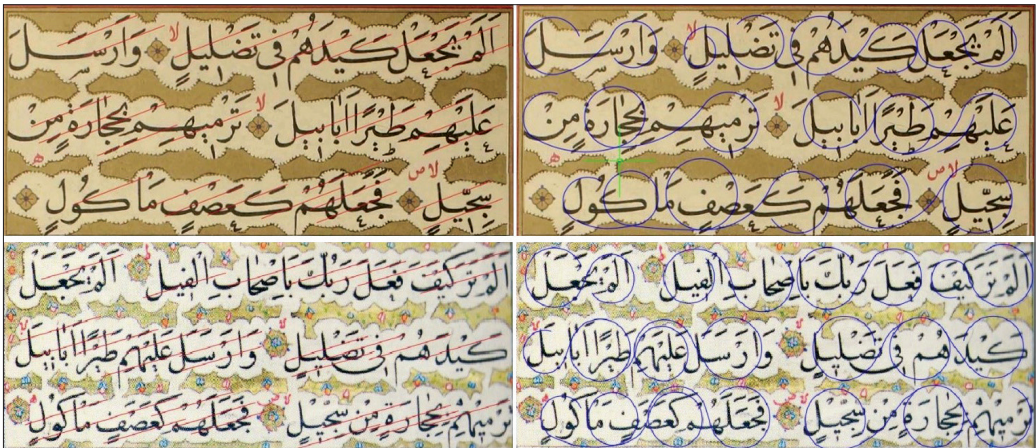 اَلَمْ يَجْعَلْ كَيْدَهُمْ فِى تَضْلِيلٍ لا وَاَرْسَلَ
عَلَيْهِمْ طَيْرًا اَبَابِيلَ لا تَرْمِيهِمْ بِحِجَارَةٍ مِنْ
سِجِّيلٍ لاص فَجَعَلَهُمْ كَعَصْفٍ مَاْكُولٍ
اَلَمْ يَجْعَلْ كَيْدَهُمْ فِى تَضْلِيلٍ لا وَاَرْسَلَ
عَلَيْهِمْ طَيْرًا اَبَابِيلَ لا تَرْمِيهِمْ بِحِجَارَةٍ مِنْ
سِجِّيلٍ لاص فَجَعَلَهُمْ كَعَصْفٍ مَاْكُولٍ
اَلَمْ تَرَ كَيْفَ فَعَلَ رَبُّكَ بِاَصْحَابِ الْفِيلِ اَلَمْ يَجْعَلْ
كَيْدَهُمْ فِى تَضْلِيلٍ لا وَاَرْسَلَ عَلَيْهِمْ طَيْرًا اَبَابِيلَ
تَرْمِيهِمْ بِحِجَارَةٍ مِنْ سِجِّيلٍ فَجَعَلَهُمْ كَعَصْفٍ مَاْكُولٍ
اَلَمْ تَرَ كَيْفَ فَعَلَ رَبُّكَ بِاَصْحَابِ الْفِيلِ اَلَمْ يَجْعَلْ
كَيْدَهُمْ فِى تَضْلِيلٍ لا وَاَرْسَلَ عَلَيْهِمْ طَيْرًا اَبَابِيلَ
تَرْمِيهِمْ بِحِجَارَةٍ مِنْ سِجِّيلٍ فَجَعَلَهُمْ كَعَصْفٍ مَاْكُولٍ